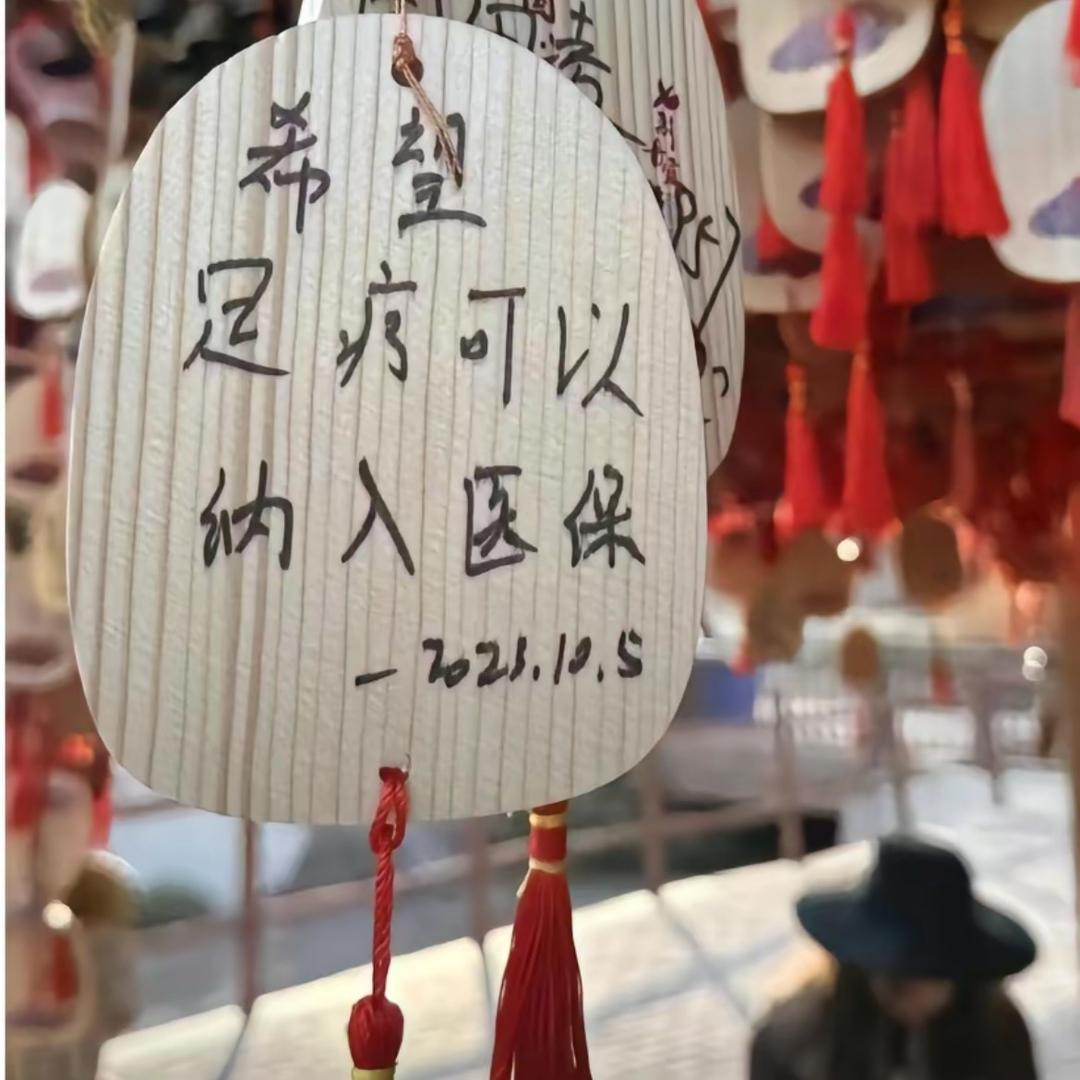 希望
足疗可以
纳入医保
- 2023.10.5